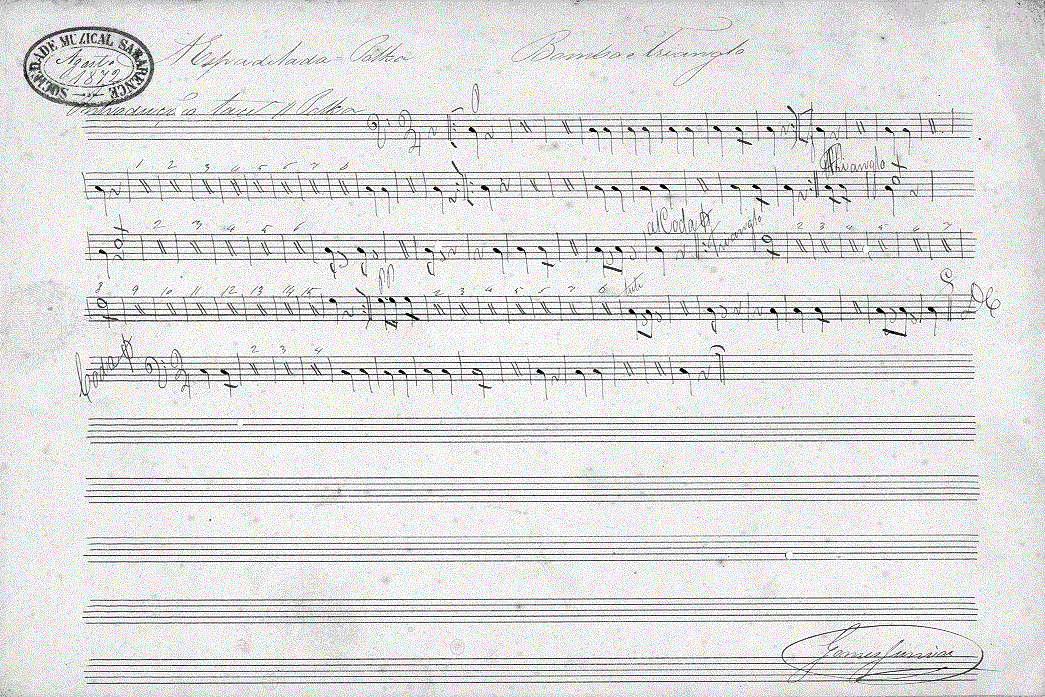 SOCIEDADE MUZICAL SABARENCE
Agosto
1872
A Espadelada = Polka
Bombo e Trianglo
Introducção tacet
Polka
1 2 3 4 5 6 7 8
Thianglo
2 3 4 5 6
al Coda
Trianglo
2 3 4 5 6 7
8 9 10 11 12 13 14 15
pp
2 3 4 5 6 7 8
tuti
DC
Coda
2 3 4
Gomes Junior